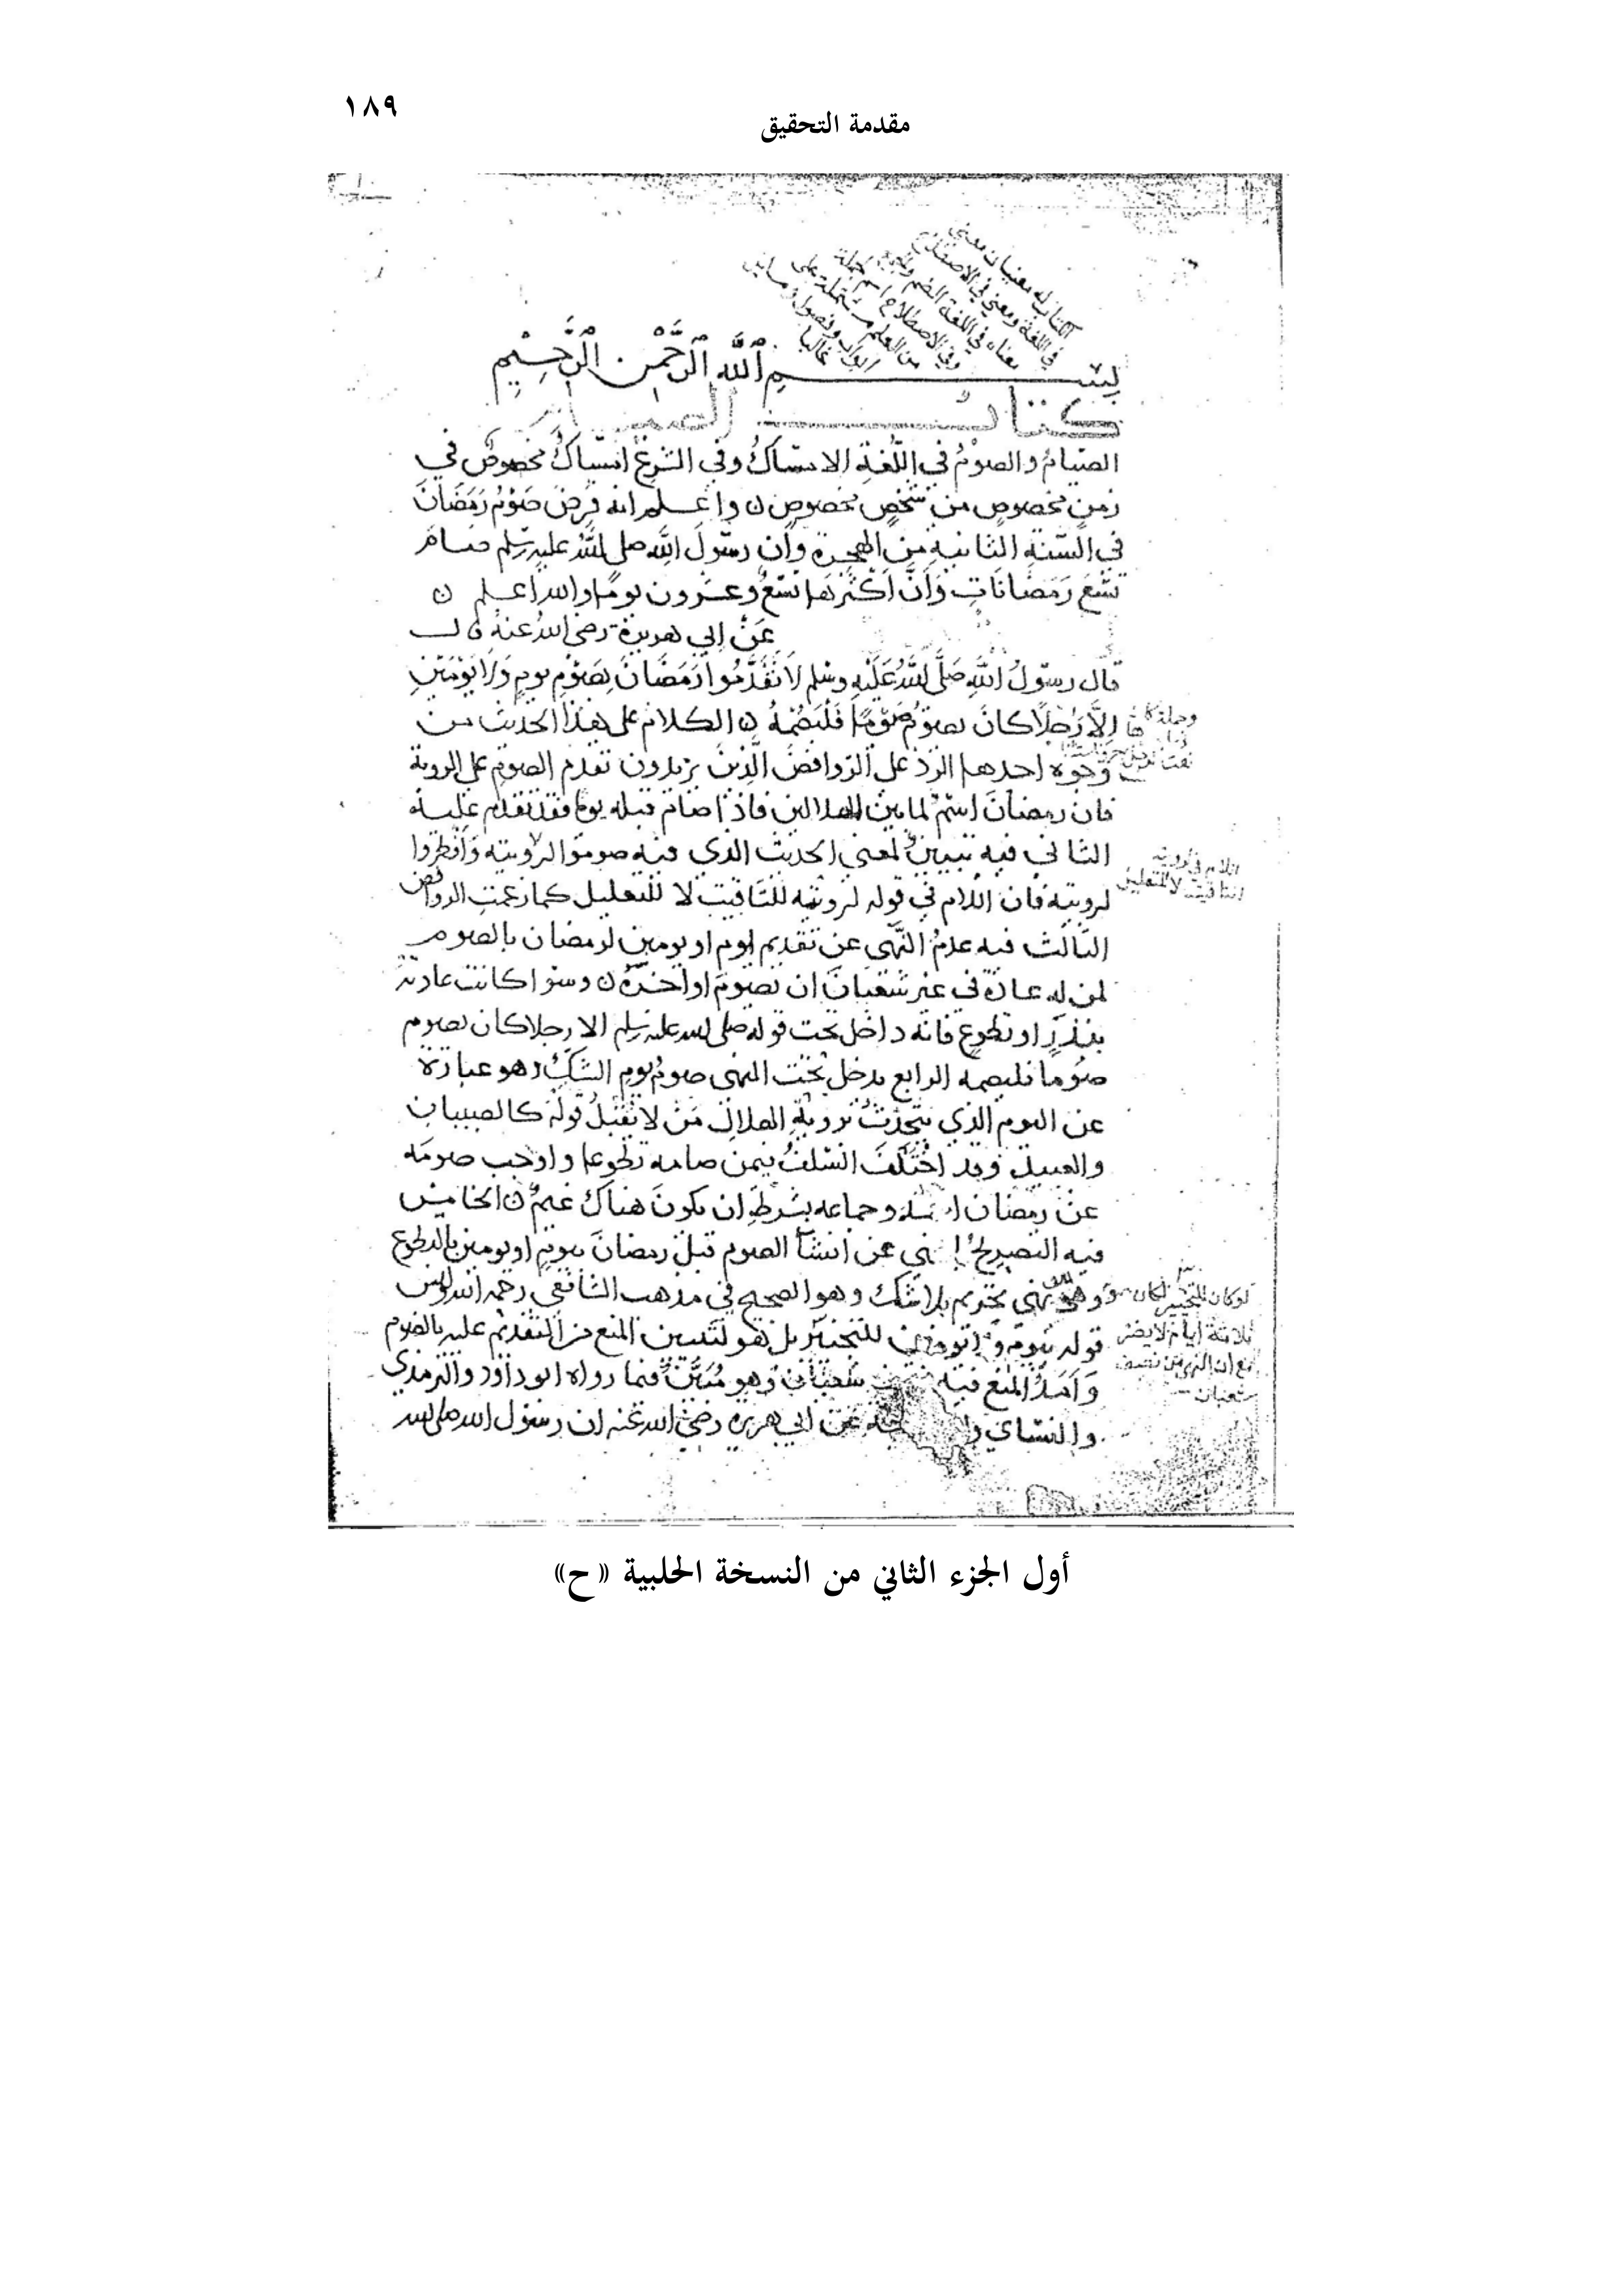 ١٨٩
مقدمة التحقيق
الكتاب له معنيان معنى
في اللغة ومعنى في الاصطلاح
معناه في اللغة الضم والجمع
وفي الاصطلاح اسم لجملة
من العلم مشتملة على
ابواب وفصول ومسائل
غالبا
بسم الله الرحمن الرحيم
كتاب الصيام
الصيام والصوم في اللغة الامساك وفي الشرع امساك مخصوص في
زمن مخصوص من شخص مخصوص ن واعلم انه فرض صوم رمضان
في السنة الثانية من الهجرة وان رسول الله صلى الله عليه وسلم صام
تسع رمضانات وان اكثرها تسع وعشرون يوما والله اعلم ن
عن ابي هريرة رضي الله عنه قال
قال رسول الله صلى الله عليه وسلم لا تقدموا رمضان بصوم يوم ولا يومين
الا رجلا كان يصوم صوما فليصمه ن الكلام على هذا الحديث من
وجوه احدها الرد على الروافض الذين يريدون تقدم الصوم على الروية
فان رمضان اسم لما بين الهلالين فاذا صام قبله يوما فقد تقدم عليه
الثاني فيه تبيين لمعنى الحديث الذي فيه صوموا لرويته وافطروا
لرويته فان اللام في قوله لرويته للتاقيت لا للتعليل كما زعمت الروافض
اللام في لرويته
للتاقيت لا للتعليل
الثالث فيه عدم النهي عن تقديم يوم او يومين لرمضان بالصوم
لمن له عادة في غير شعبان ان يصوم اواخره ن وسوا كانت عادته
بنذر او تطوع فانه داخل تحت قوله صلى الله عليه وسلم الا رجلا كان يصوم
صوما فليصمه الرابع يدخل تحت النهي صوم يوم الشك وهو عبارة
عن اليوم الذي يتحدث بروية الهلال من لا تقبل قوله كالصبيان
والعبيد وقد اختلف السلف فيمن صامه تطوعا واوجب صومه
عن رمضان وجماعه بشرط ان يكون هناك غيم ن الخامس
فيه التصريح عن انشا الصوم قبل رمضان بيوم او يومين بالتطوع
وهو نهي تحريم بلا شك وهو الصحيح في مذهب الشافعي رحمه الله وليس
قوله بيوم او يومين للتخيير بل هو لتبيين المنع من التقديم عليه بالصوم
وامد المنع فيه شعبان وهو مبين فيما رواه ابو داود والترمذي
والنساي عن ابي هريره رضي الله عنه ان رسول الله صلى الله
لوكان للتخيير لكان
ثلاثة ايام لا يضر
شعبان
أول الجزء الثاني من النسخة الحلبية «ح»